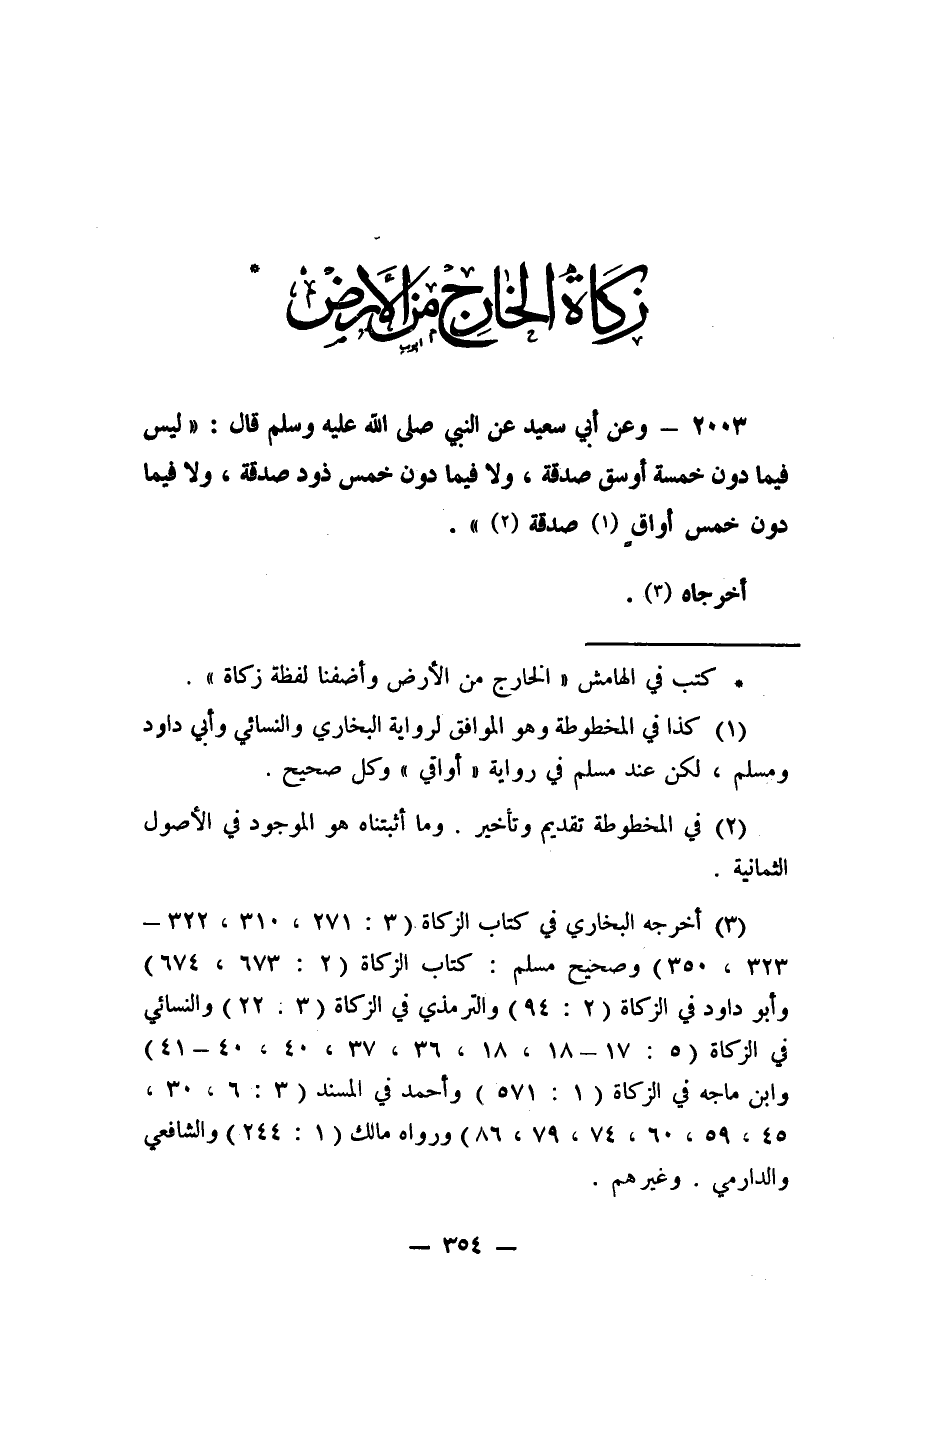 زكاة الخارج من الأرض *
٢٠٠٣ – وعن أبي سعيد عن النبي صلى الله عليه وسلم قال : « ليس
فيما دون خمسة أوسق صدقة ، ولا فيما دون خمس ذود صدقة ، ولا فيما
دون خمس أواقٍ (١) صدقة (٢) » .
أخرجاه (٣) .
* كتب في الهامش « الخارج من الأرض وأضفنا لفظة زكاة » .
(١) كذا في المخطوطة وهو الموافق لرواية البخاري والنسائي وأبي داود
ومسلم ، لكن عند مسلم في رواية « أواقي » وكل صحيح .
(٢) في المخطوطة تقديم وتأخير . وما أثبتناه هو الموجود في الأصول
الثمانية .
(٣) أخرجه البخاري في كتاب الزكاة ( ٣ : ٢٧١ ، ٣١٠ ، ٣٢٢ –
٣٢٣ ، ٣٥٠ ) وصحيح مسلم : كتاب الزكاة ( ٢ : ٦٧٣ ، ٦٧٤ )
وأبو داود في الزكاة ( ٢ : ٩٤ ) والترمذي في الزكاة ( ٣ : ٢٢ ) والنسائي
في الزكاة ( ٥ : ١٧ – ١٨ ، ١٨ ، ٣٦ ، ٣٧ ، ٤٠ ، ٤٠ – ٤١ )
وابن ماجه في الزكاة ( ١ : ٥٧١ ) وأحمد في المسند ( ٣ : ٦ ، ٣٠ ،
٤٥ ، ٥٩ ، ٦٠ ، ٧٤ ، ٧٩ ، ٨٦ ) ورواه مالك ( ١ : ٢٤٤ ) والشافعي
والدارمي . وغيرهم .
– ٣٥٤ –